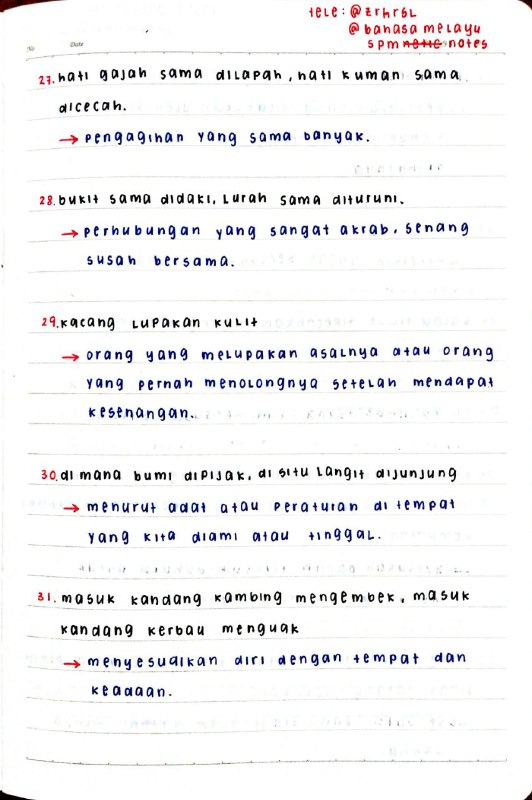 tele: @zrhrsl
@bahasa melayu
spm notes
No
Date
27. hati gajah sama dilapah, hati kuman sama
dicecah.
→ pengagihan yang sama banyak.
28. bukit sama didaki, lurah sama dituruni.
→ perhubungan yang sangat akrab, senang
susah bersama.
29. kacang lupakan kulit
→ orang yang melupakan asalnya atau orang
yang pernah menolongnya setelah mendapat
kesenangan.
30. di mana bumi dipijak, di situ langit dijunjung
→ menurut adat atau peraturan di tempat
yang kita diami atau tinggal.
31. masuk kandang kambing mengembek, masuk
kandang kerbau menguak
→ menyesuaikan diri dengan tempat dan
keadaan.